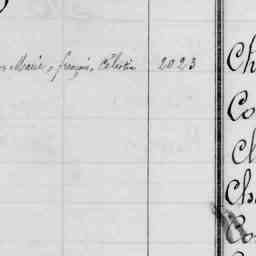 Marie, françois, Célestin 2023
Ch
Co
Ch
Ch
Co